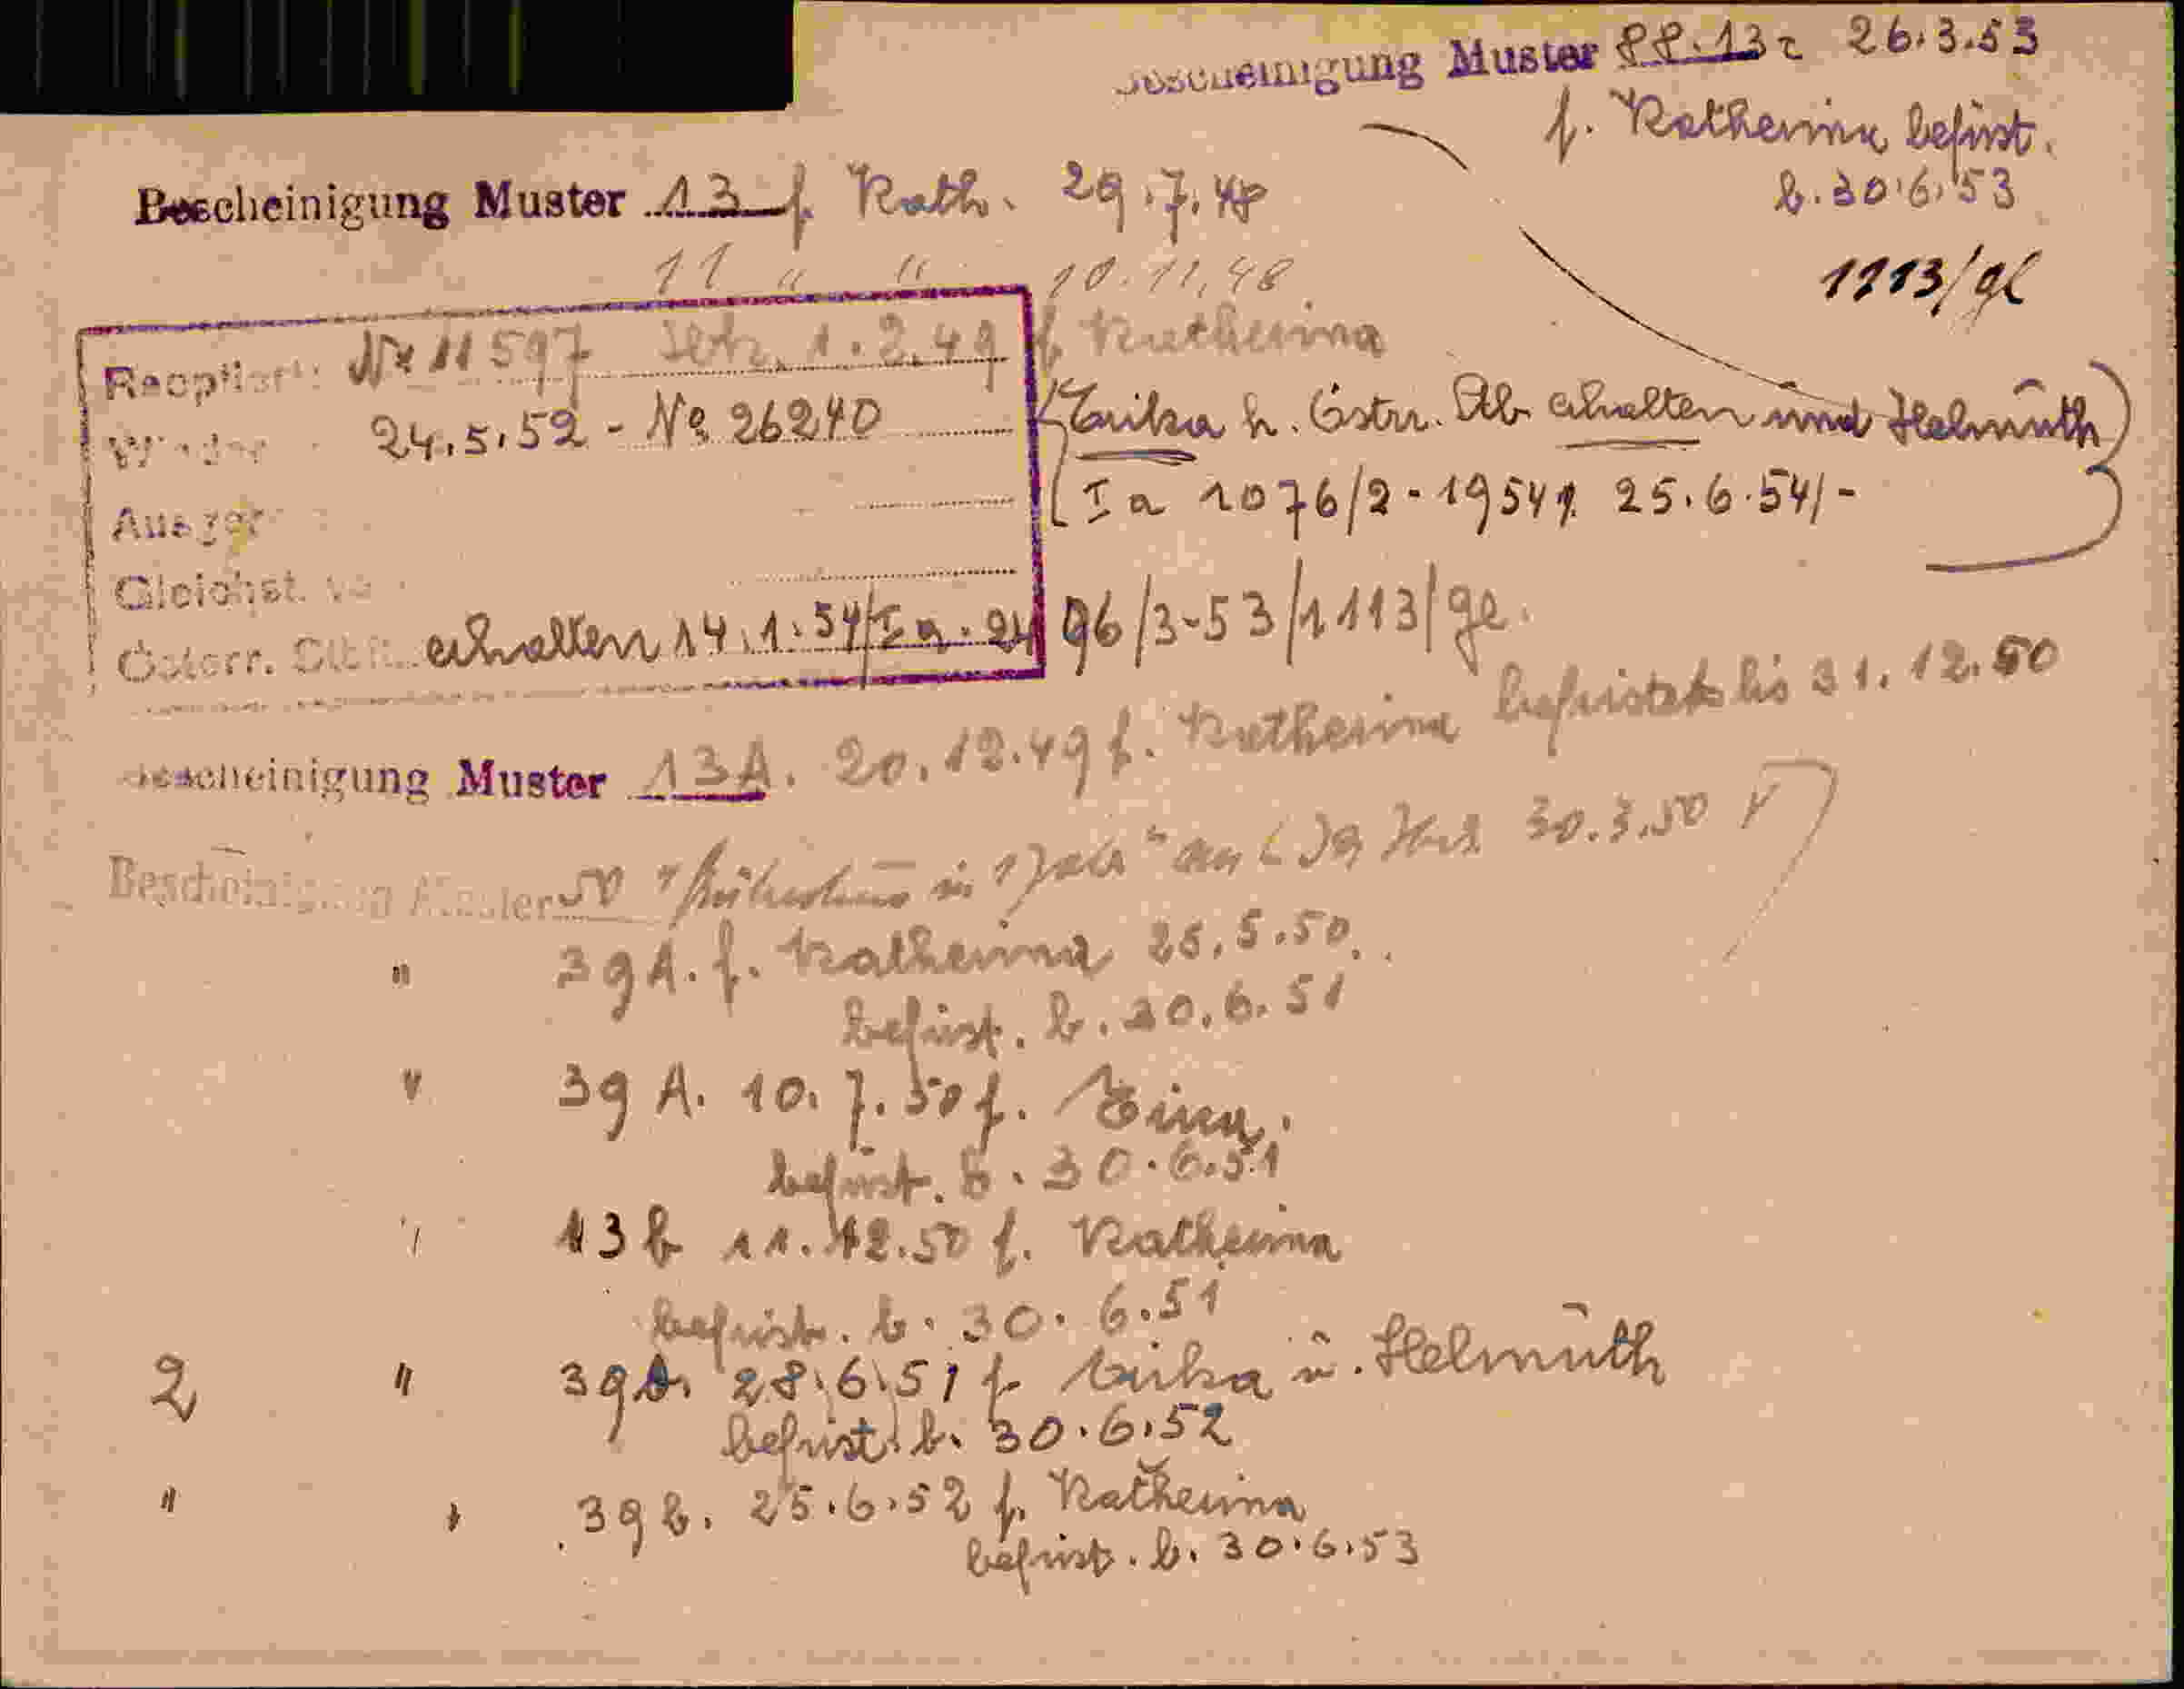 Bescheinigung Muster 88.13c 26.3.53
f. Katherina befrist.
b. 30.6.53
1113/gl
Bescheinigung Muster 13 f. Kath. 29.7.48
11 " " 10.11.48
Reoptiert: Nr 11597 1.2.49 f Katherina
24.5.52 - No 26240
Erika h. Östr. Stb erhalten und Helmuth
Ia 1076/2-1954 25.6.54/-
Ausger
Gleichst.
Österr. Stb. erhalten 14.1.54/Ia-2496/3-53/1113/ge.
Bescheinigung Muster 13A. 20.12.49 f. Katherina befristet bis 31.12.50
Bescheinigung Muster 50 in 1 30.3.50
" 39A. f. Katherina 25.5.50.
befrist. b. 30.6.51
" 39 A. 10.7.50 f.
befrist. b. 30.6.51
" 13b 11.12.50 f. Katherina
befrist. b. 30.6.51
2 " 39b. 28.6.51 f Erika u. Helmuth
befrist. b. 30.6.52
" " 39b. 25.6.52 f. Katherina
befrist. b. 30.6.53